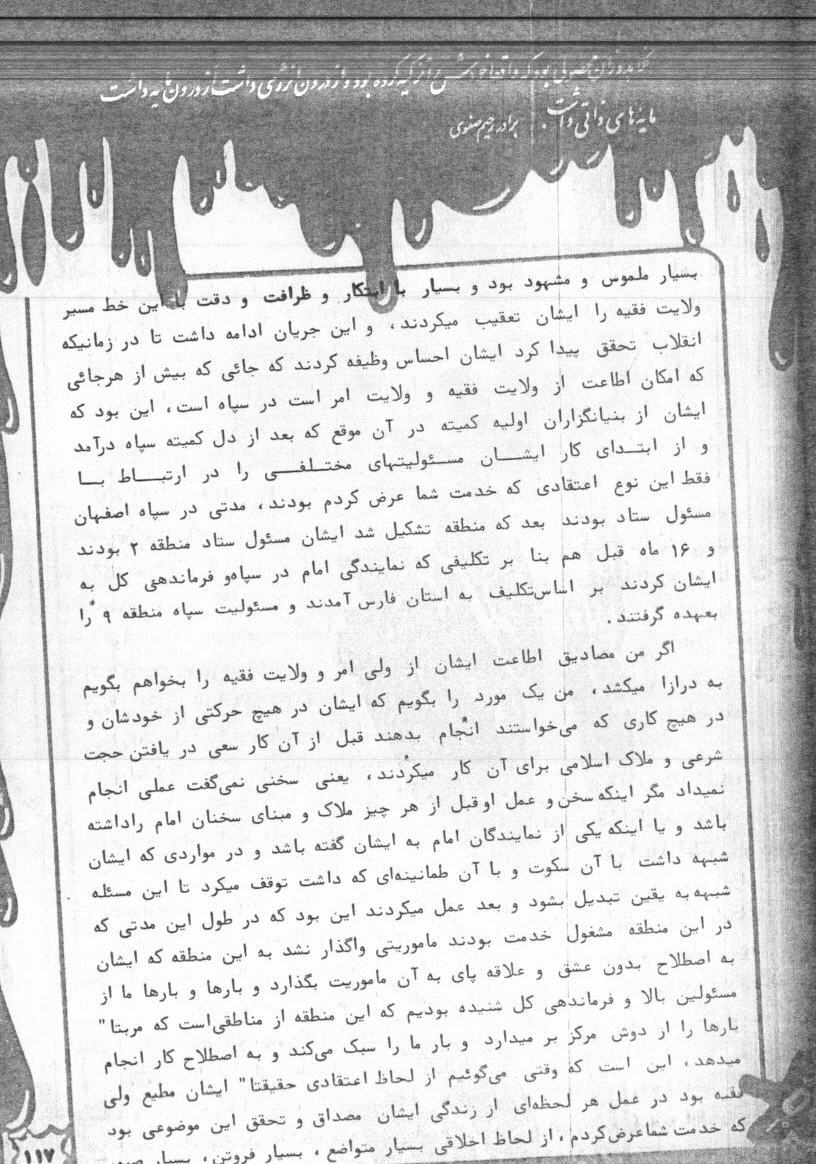 بود که واقعا خودش را تزکیه کرده بود و از درون انرژی داشت از درون مایه داشت
مایه های ذاتی داشت. برادر رحیم صفوی
بسیار ملموس و مشهود بود و بسیار با ابتکار و ظرافت و دقت با این خط مسیر
ولایت فقیه را ایشان تعقیب میکردند، و این جریان ادامه داشت تا در زمانیکه
انقلاب تحقق پیدا کرد ایشان احساس وظیفه کردند که جائی که بیش از هرجائی
که امکان اطاعت از ولایت فقیه و ولایت امر است در سپاه است، این بود که
ایشان از بنیانگزاران اولیه کمیته در آن موقع که بعد از دل کمیته سپاه درآمد
و از ابتدای کار ایشان مسئولیتهای مختلفی را در ارتباط با
فقط این نوع اعتقادی که خدمت شما عرض کردم بودند، مدتی در سپاه اصفهان
مسئول ستاد بودند بعد که منطقه تشکیل شد ایشان مسئول ستاد منطقه ۲ بودند
و ۱۶ ماه قبل هم بنا بر تکلیفی که نمایندگی امام در سپاه و فرماندهی کل به
ایشان کردند بر اساس تکلیف به استان فارس آمدند و مسئولیت سپاه منطقه ۹ را
بعهده گرفتند.
اگر من مصادیق اطاعت ایشان از ولی امر و ولایت فقیه را بخواهم بگویم
به درازا میکشد، من یک مورد را بگویم که ایشان در هیچ حرکتی از خودشان و
در هیچ کاری که می‌خواستند انجام بدهند قبل از آن کار سعی در یافتن حجت
شرعی و ملاک اسلامی برای آن کار میکردند، یعنی سخنی نمی‌گفت عملی انجام
نمیداد مگر اینکه سخن و عمل او قبل از هر چیز ملاک و مبنای سخنان امام راداشته
باشد و یا اینکه یکی از نمایندگان امام به ایشان گفته باشد و در مواردی که ایشان
شبهه داشت با آن سکوت و با آن طمانینه‌ای که داشت توقف میکرد تا این مسئله
شبهه به یقین تبدیل بشود و بعد عمل میکردند این بود که در طول این مدتی که
در این منطقه مشغول خدمت بودند ماموریتی واگذار نشد به این منطقه که ایشان
به اصطلاح بدون عشق و علاقه پای به آن ماموریت بگذارد و بارها و بارها ما از
مسئولین بالا و فرماندهی کل شنیده بودیم که این منطقه از مناطقی‌است که مربتا"
بارها را از دوش مرکز بر میدارد و بار ما را سبک می‌کند و به اصطلاح کار انجام
میدهد، این است که وقتی می‌گوئیم از لحاظ اعتقادی حقیقتا" ایشان مطیع ولی
فقیه بود در عمل هر لحظه‌ای از زندگی ایشان مصداق و تحقق این موضوعی بود
که خدمت شما عرض کردم، از لحاظ اخلاقی بسیار متواضع، بسیار فروتن، بسیار
۱۱۷